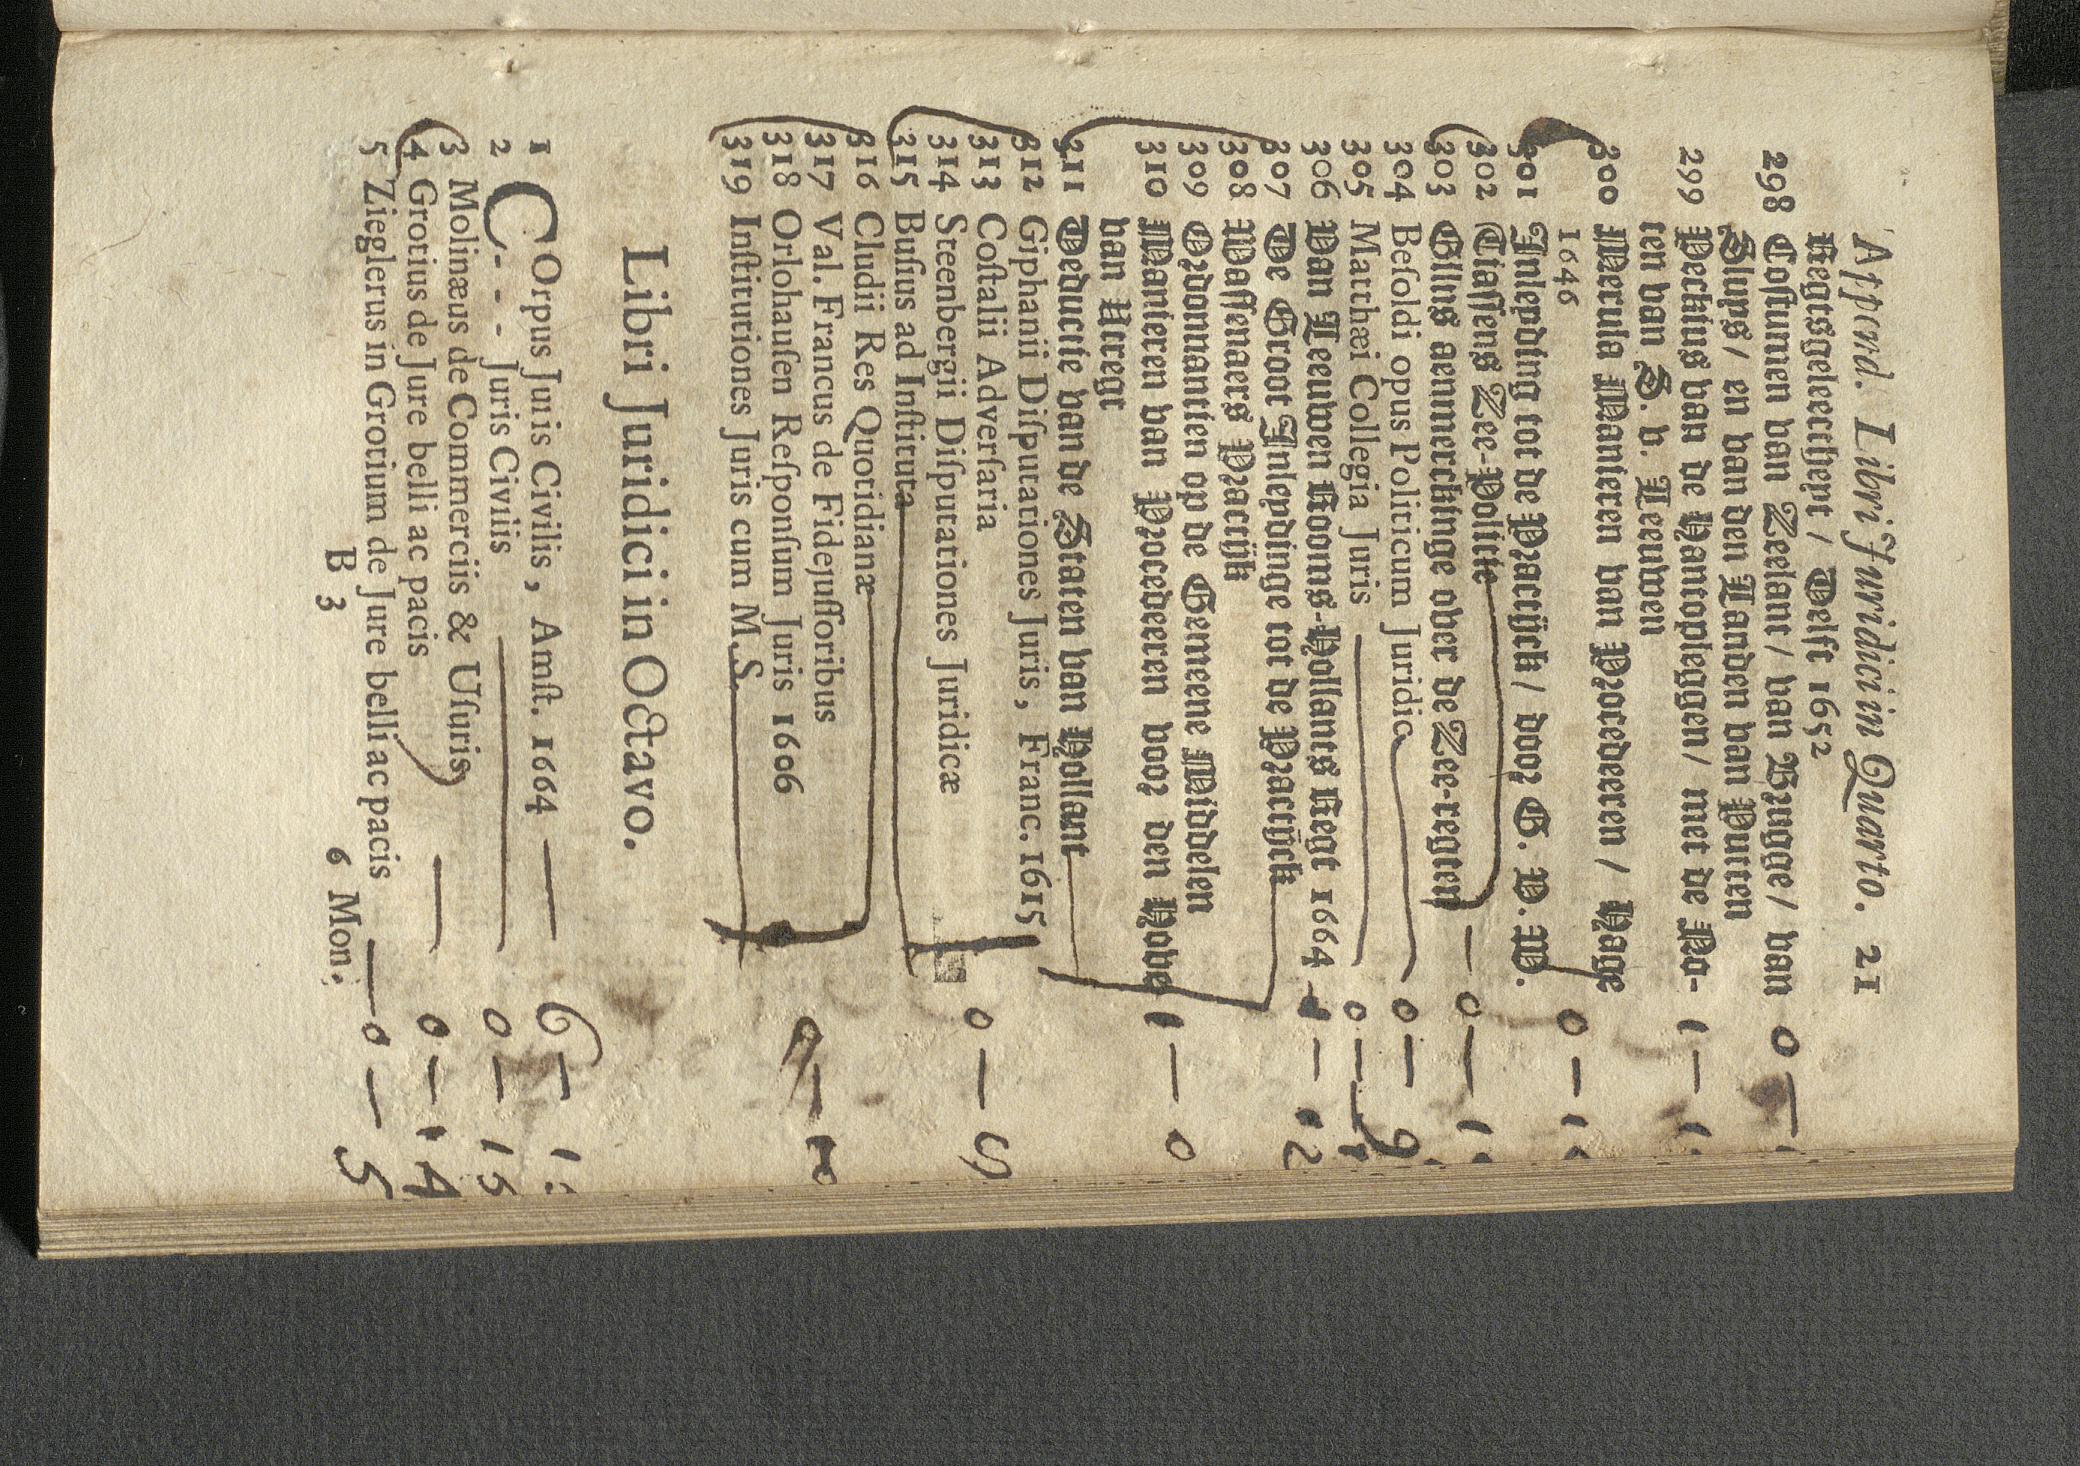 Append. Libri Juridici in Quarto. 21
Regtsgeleertheyt / Delft 1652
298 Costumen van Zeelant / van Brugge / van 0 —
Sluys / en van den Landen van Putten
299 Peckius van de Hantopleggen / met de No- 1 —
ten van S. v. Leeuwen
300 Merula Manieren van Procederen / Hage
1646 0 —
301 Inleyding tot de Practijck / door G. D. M.
302 Tiassens Zee-Politie
303 Glins aenmerckinge over de Zee-regten — 0 —
304 Besoldi opus Politicum Juridic. 0 — 9
305 Matthæi Collegia Juris 0 —
306 Van Leeuwen Rooms-Hollants Regt 1664 — 12
307 De Groot Inleydinge tot de Practijck
308 Wassenaers Practijk
309 Ordonnantien op de Gemeene Middelen
310 Manieren van Procederen voor den Hove 1 — 0
van Utregt
311 Deductie van de Staten van Hollant
312 Giphanii Disputationes Juris, Franc. 1615
313 Costalii Adversaria 0 —
314 Steenbergii Disputationes Juridicæ
315 Busius ad Instituta
316 Cludii Res Quotidianæ
317 Val. Francus de Fidejussoribus
318 Orlohausen Responsum Juris 1606
319 Institutiones Juris cum M.S.
Libri Juridici in Octavo.
1 COrpus Juris Civilis, Amst. 1664 — 6 —
2 - - - Juris Civilis 0 — 15
3 Molinæus de Commerciis & Usuris
4 Grotius de Jure belli ac pacis — 0 — 14
5 Zieglerus in Grotium de Jure belli ac pacis — 0 — 5
B 3 6 Mon.